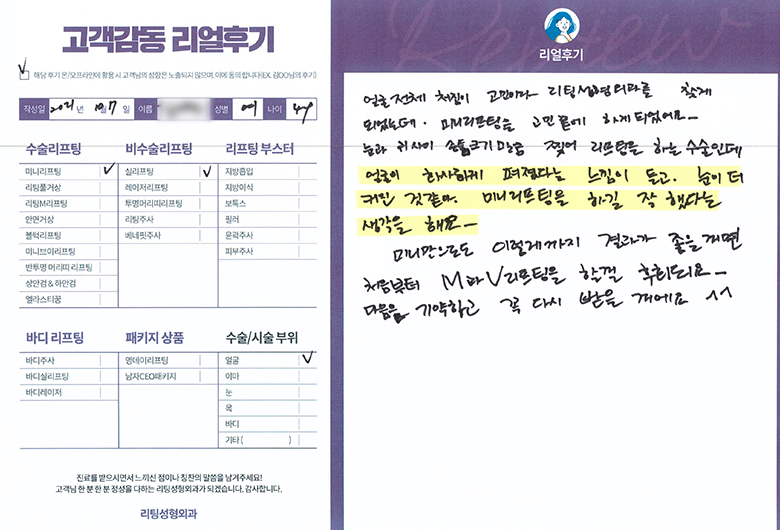 고객감동 리얼후기
해당 후기 온/오프라인에 활용 시 고객님의 성함은 노출되지 않으며, 이에 동의 합니다(EX. 김OO님의 후기)
작성일 2021년 10월 7일 이름 성별 여 나이
수술리프팅
미니리프팅
리팅풀거상
리팅M리프팅
안면거상
볼턱리프팅
미니브이리프팅
반투명 머리띠 리프팅
상안검 & 하안검
엘라스티꿈
비수술리프팅
실리프팅
레이저리프팅
투명머리띠리프팅
리팅주사
버네핏주사
리프팅 부스터
지방흡입
지방이식
보톡스
필러
윤곽주사
피부주사
바디 리프팅
바디주사
바디실리프팅
바디레이저
패키지 상품
영데이리프팅
남자CEO패키지
수술/시술 부위
얼굴
이마
눈
목
바디
기타 ( )
진료를 받으시면서 느끼신 점이나 칭찬의 말씀을 남겨주세요!
고객님 한 분 한 분 정성을 다하는 리팅성형외과가 되겠습니다. 감사합니다.
리팅성형외과
Review
리얼후기
얼굴 전체 처짐이 고민이라 리팅성형외과를 찾게
되었는데. 미니리프팅을 고민 끝에 하게 되었어요~
눈과 귀 사이 손톱크기 만큼 찢어 리프팅을 하는 수술인데
얼굴이 화사하게 펴졌다는 느낌이 들고. 눈이 더
커진 것같아. 미니리프팅을 하길 잘 했다는
생각을 해요~
미니만으로도 이렇게까지 결과가 좋을꺼면
처음부터 M과 V리프팅을 할껄 후회되요~
다음을 기약하고 꼭 다시 받을 꺼에요 ^^